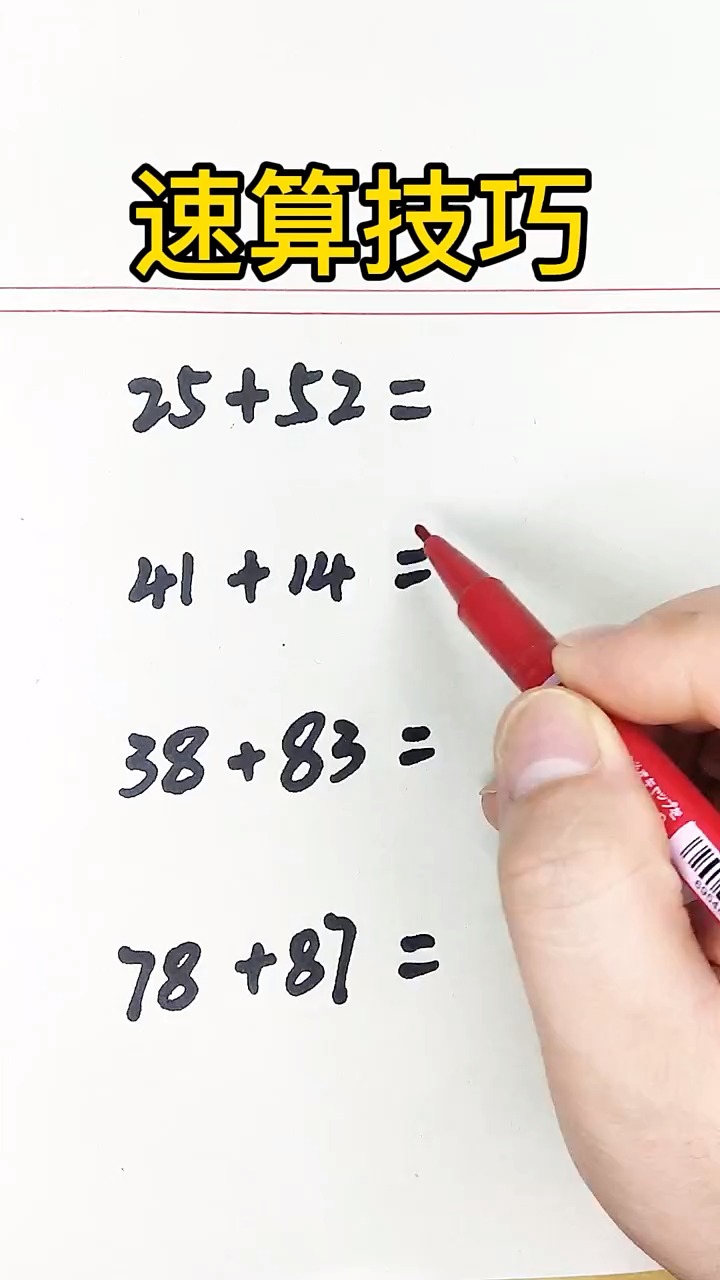 速算技巧
25+52=
41+14=
38+83=
78+87=